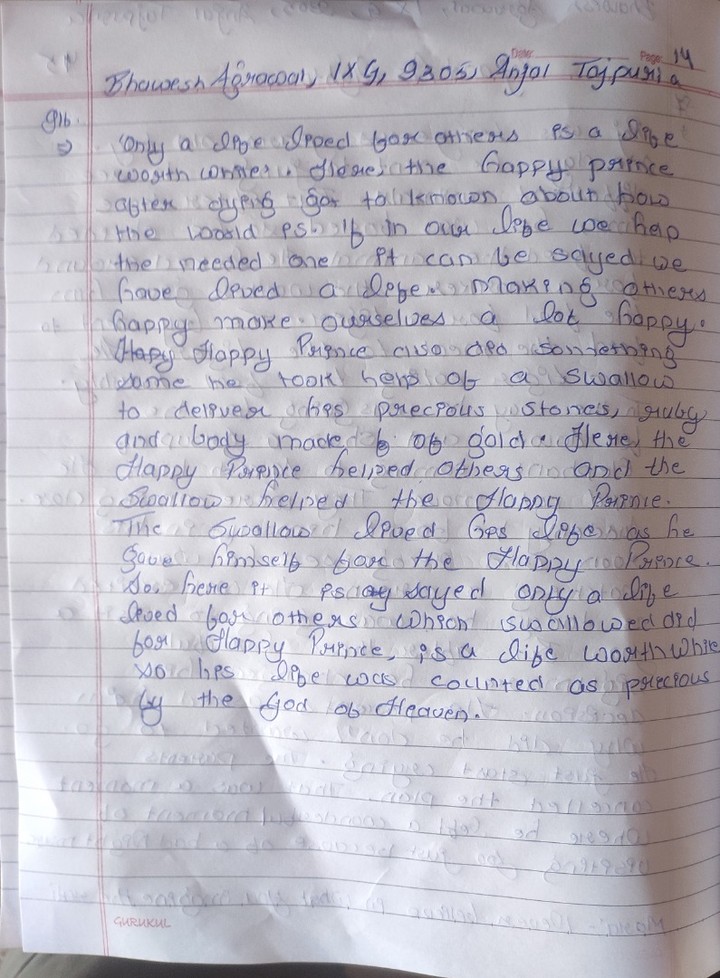 Date Page 14
Bhawesh Agrawal, IX G, 9305, Anjal Tajpuria
Q1b.
⇒ Only a life lived for others is a life
worth while. Here, the happy prince
after dying got to known about how
the world is. If in our life we help
the needed one it can be sayed we
have lived a life. Making others
happy make ourselves a lot happy.
Happy Prince also did something
same he took help of a swallow
to deliver his precious stones, ruby
and body made of gold. Here, the
Happy Prince helped others and the
Swallow helped the Happy Prince.
The Swallow lived his life as he
gave himself for the Happy Prince.
So, here it is sayed only a life
lived for others which swallowed did
for Happy Prince, is a life worthwhile
so his life was counted as precious
by the God of Heaven.
GURUKUL